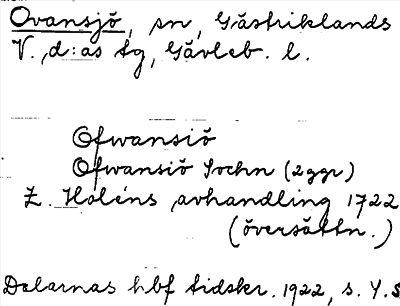 Ovansjö, sn, Gästriklands
V., d:as tg, Gävleb. l.
Ofwansiö
Ofwansiö Sochn (2ggr)
Z. Holéns avhandling 1722
(översättn.)
Dalarnas hbf tidskr. 1922, s. 4.5